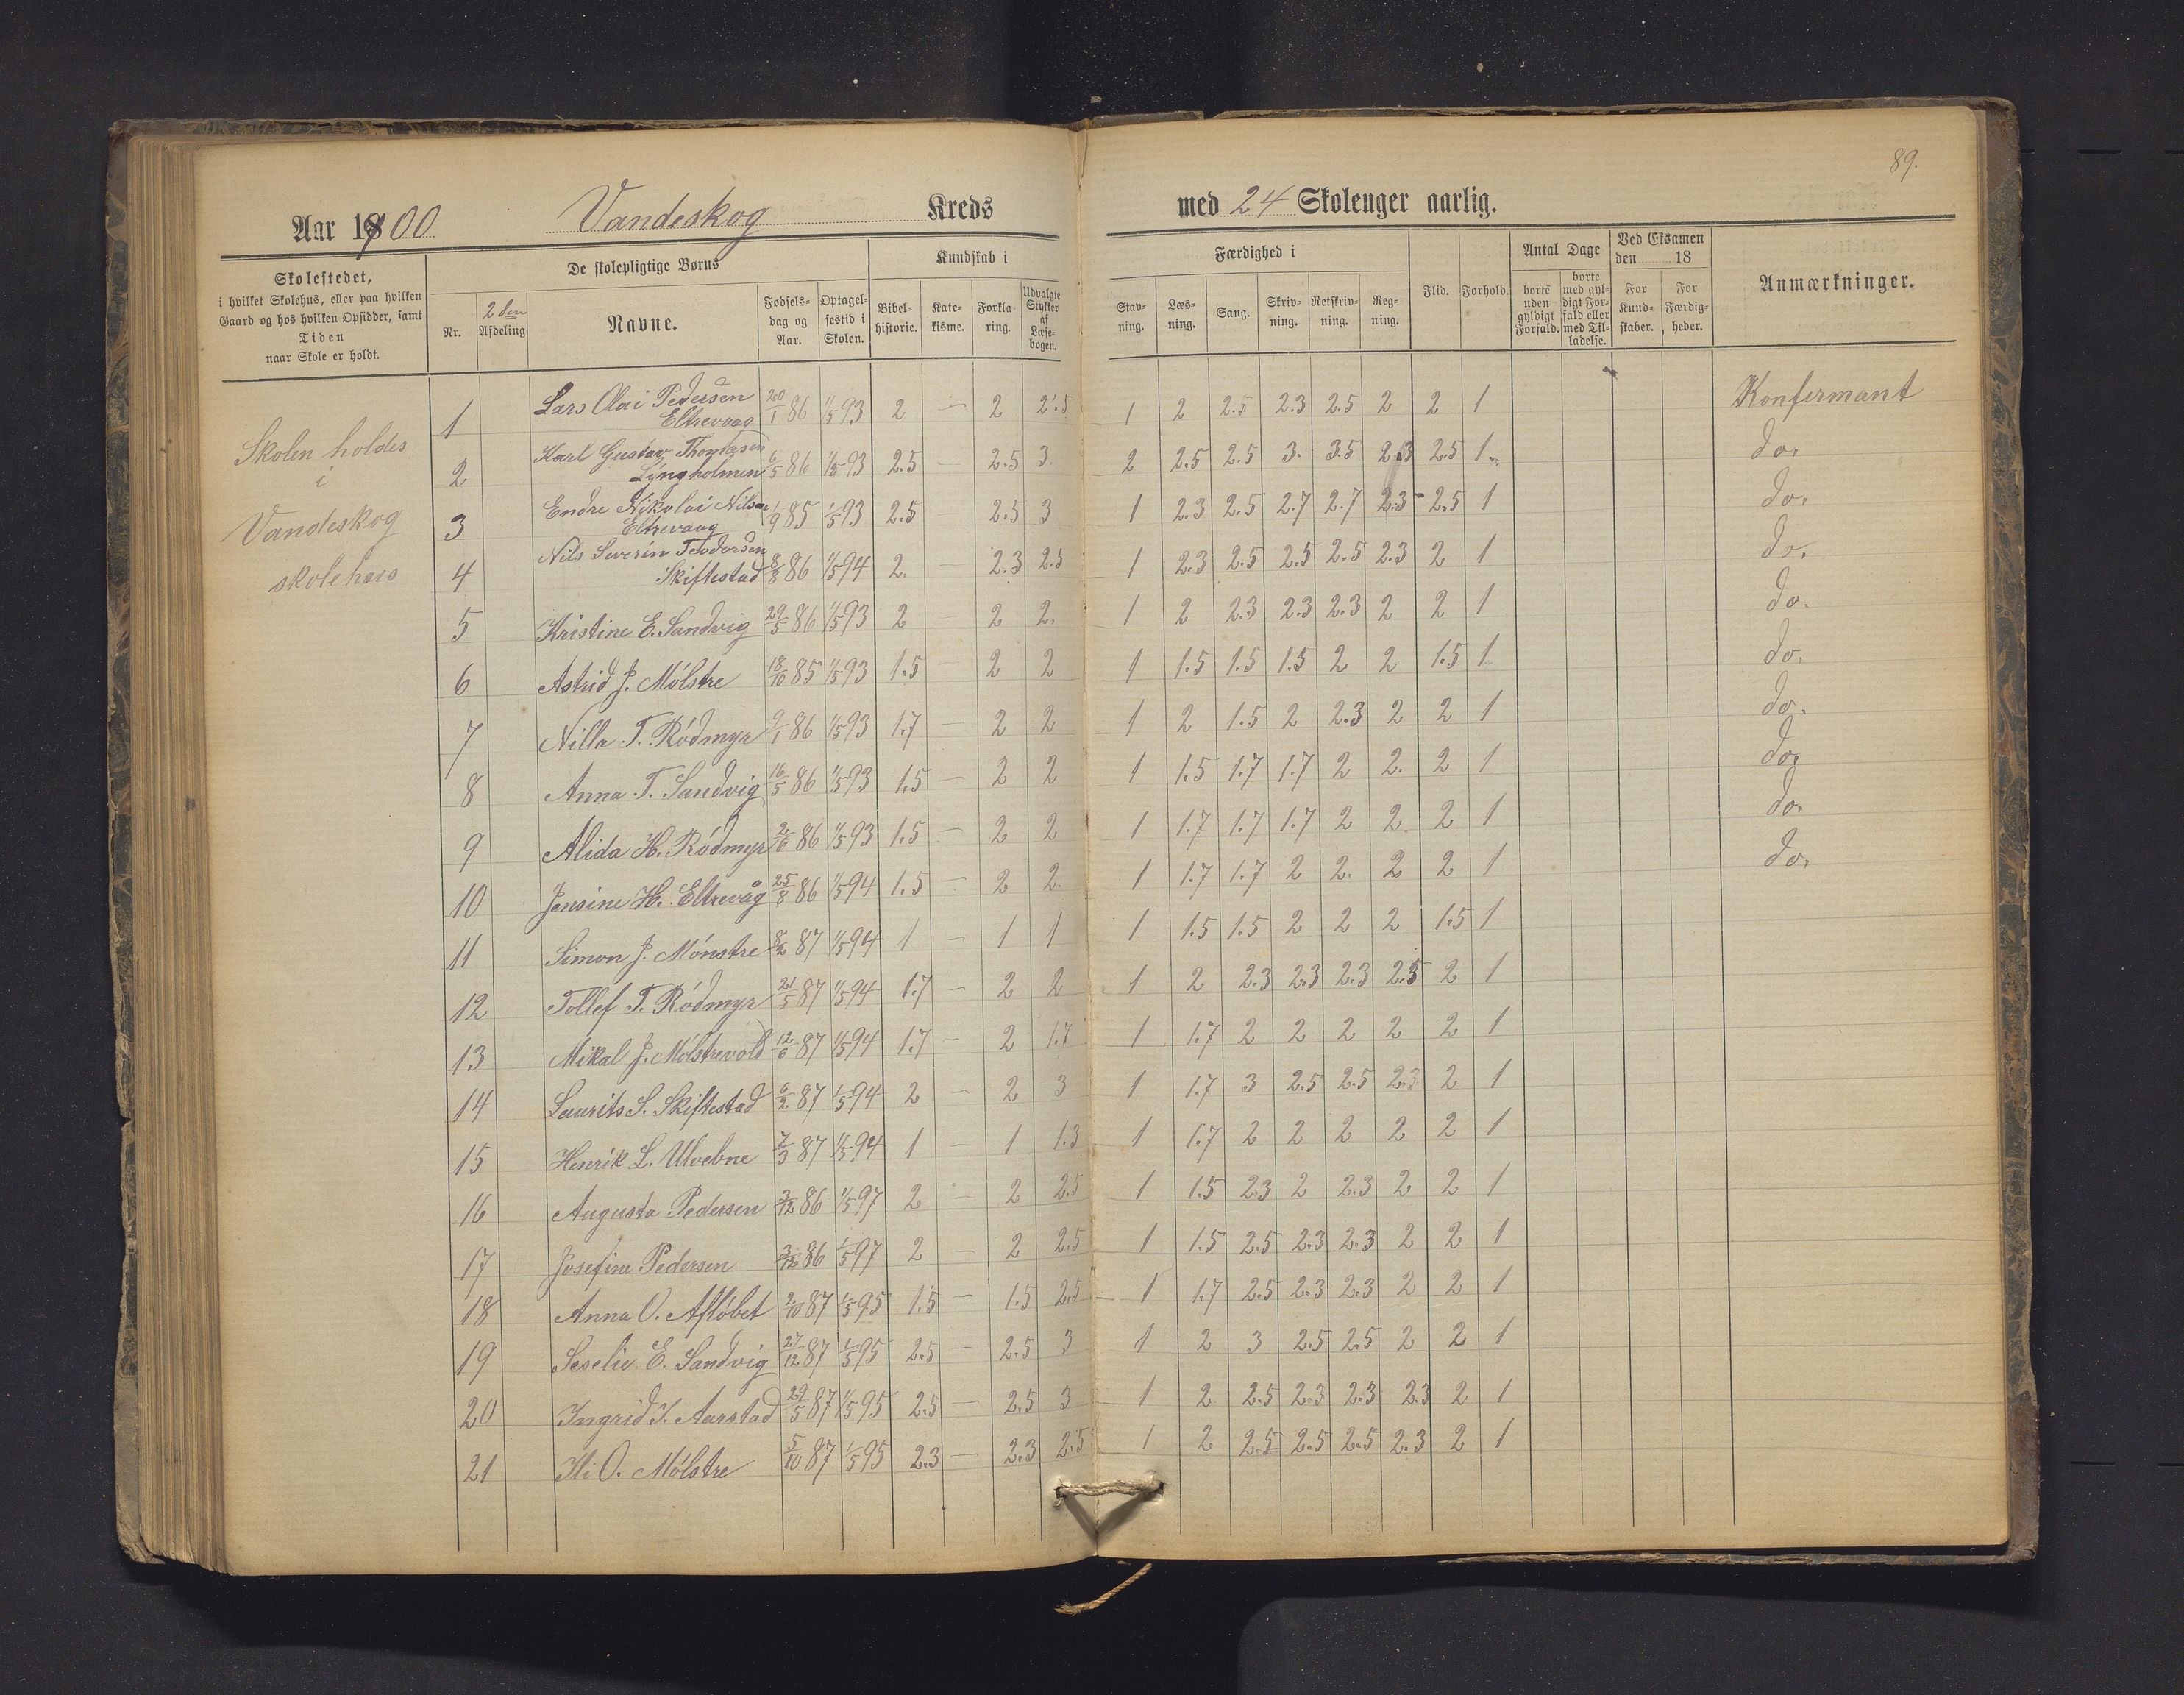 89.
Aar 1900 Vandeskog Kreds med 24 Skoleuger aarlig.
Skolestedet, i hvilket Skolehus, eller paa hvilken Gaard og hos hvilken Opsidder, samt Tiden naar Skole er holdt.
De skolepligtige Børns
Nr. 2den Afdeling Navne. Fødsels-dag og Aar. Optagel-sestid i Skolen.
Kundskab i
Bibel-historie. Kate-kisme. Forkla-ring. Udvalgte Stykker af Læse-bogen.
Færdighed i
Stav-ning. Læs-ning. Sang. Skriv-ning. Retskriv-ning. Reg-ning.
Flid. Forhold.
Antal Dage
borte uden gyldigt Forfald. borte med gyl-digt For-fald eller med Til-ladelse.
Ved Eksamen den 18
For Kund-skaber. For Færdig-heder.
Anmærkninger.
Skolen holdes
i
Vandeskog
skolehus
1 Lars Olai Pedersen Eltrevaag 20/1 86 1/5 93 2 — 2 2.5 1 2 2.5 2.3 2.5 2 2 1 Konfirmant
2 Karl Gustav Thomassen Lyngholmen 6/5 86 1/5 93 2.5 — 2.5 3. 2 2.5 2.5 3. 3.5 2.3 2.5 1 do.
3 Endre Nikolai Nilsen Eltrevaag 1/9 85 1/5 93 2.5 — 2.5 3 1 2.3 2.5 2.7 2.7 2.3 2.5 1 do.
4 Nils Severin Teodorsen Skiftestad 8/8 86 1/5 94 2. 2.3 2.5 1 2.3 2.5 2.5 2.5 2.3 2 1 do.
5 Kristine E. Sandvig 29/5 86 1/5 93 2 — 2 2. 1 2 2.3 2.3 2.3 2 2 1 do.
6 Astrid J. Mólstre 18/10 85 1/5 93 1.5 — 2 2 1 1.5 1.5 1.5 2 2 1.5 1 do.
7 Nilla T. Ródmyr 9/1 86 1/5 93 1.7 — 2 2 1 2 1.5 2 2.3 2 2 1 do.
8 Anna T. Sandvig 16/5 86 1/5 93 1.5 — 2 2 1 1.5 1.7 1.7 2 2. 2 1 do.
9 Alida H. Ródmyr 2/6 86 1/5 93 1.5 — 2 2 1 1.7 1.7 1.7 2 2. 2 1 do.
10 Jensine H. Eltrevåg 25/8 86 1/5 94 1.5 — 2 2. 1 1.7 1.7 2 2. 2 2 1 do.
11 Simon J. Mónstre 8/2 87 1/5 94 1 — 1 1 1 1.5 1.5 2 2 2 1.5 1
12 Tollef T. Ródmyr 21/5 87 1/5 94 1.7 — 2 2 1 2 2.3 2.3 2.3 2.5 2 1
13 Mikal J. Mólstrevold 12/6 87 1/5 94 1.7 — 2 1.7 1 1.7 2 2 2 2 2 1
14 Laurits S. Skiftestad 6/2 87 1/5 94 2 — 2 3 1 1.7 3 2.5 2.5 2.3 2 1
15 Henrik L. Ulvebne 7/3 87 1/5 94 1 — 1 1.3 1 1.7 2 2 2 2 2 1
16 Augusta Pedersen 3/12 86 1/5 97 2 — 2 2.5 1 1.5 2.3 2 2.3 2 2 1
17 Josefine Pedersen 3/12 86 1/5 97 2 — 2 2.5 1 1.5 2.5 2.3 2.3 2 2 1
18 Anna O. Aflóbet 2/10 87 1/5 95 1.5 — 1.5 2.5 1 1.7 2.5 2.3 2.3 2 2 1
19 Seselie E. Sandvig 27/12 87 1/5 95 2.5 — 2.5 3 1 2 3 2.5 2.5 2 2 1
20 Ingrid I. Aarstad 29/5 87 1/5 95 2.5 — 2.5 3 1 2 2.5 2.3 2.3 2.3 2 1
21 Ili O. Mólstre 5/10 87 1/5 95 2.3 — 2.3 2.5 1 2 2.5 2.5 2.5 2.3 2 1